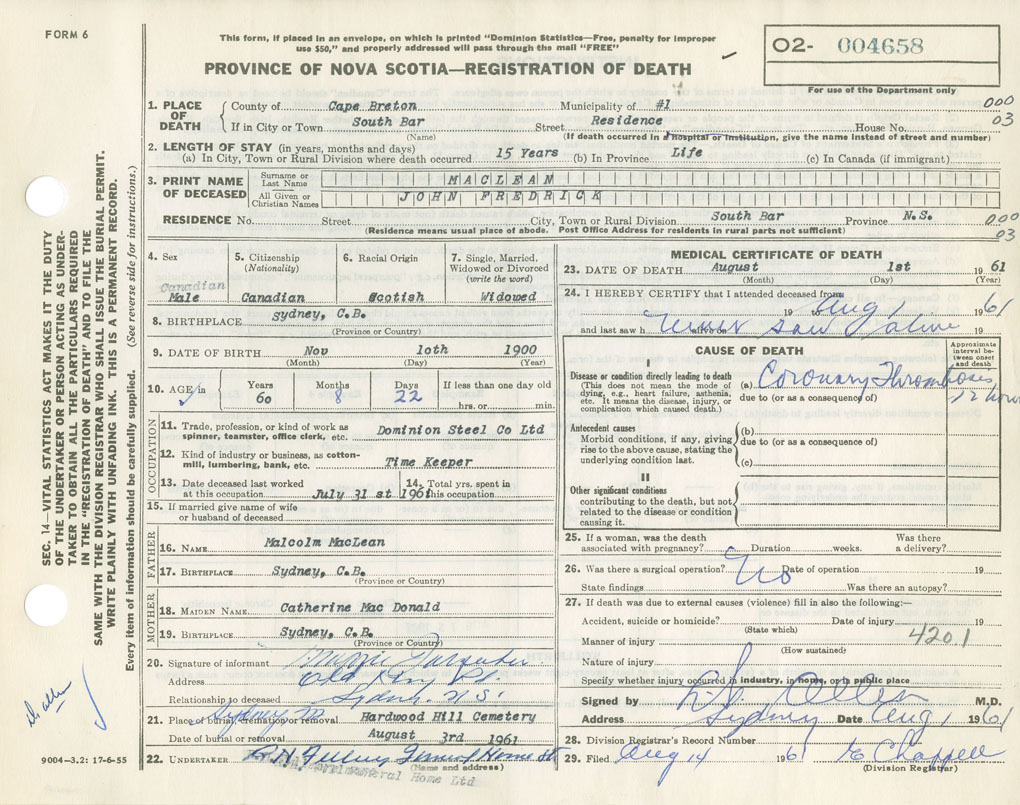 FORM 6
This form, if placed in an envelope, on which is printed "Dominion Statistics—Free, penalty for improper
use $50," and properly addressed will pass through the mail "FREE"
PROVINCE OF NOVA SCOTIA—REGISTRATION OF DEATH
02- 004658
For use of the Department only
1. PLACE OF DEATH
County of Cape Breton Municipality of #1 000
If in City or Town South Bar Street Residence House No. 03
(Name) (If death occurred in a hospital or institution, give the name instead of street and number)
2. LENGTH OF STAY (in years, months and days)
(a) In City, Town or Rural Division where death occurred 15 Years (b) In Province Life (c) In Canada (if immigrant)
3. PRINT NAME OF DECEASED
Surname or Last Name MACLEAN
All Given or Christian Names JOHN FREDRICK
RESIDENCE No. Street City, Town or Rural Division South Bar Province N.S. 000
(Residence means usual place of abode. Post Office Address for residents in rural parts not sufficient) 03
4. Sex
Canadian
Male
5. Citizenship
(Nationality)
Canadian
6. Racial Origin
Scotish
7. Single, Married,
Widowed or Divorced
(write the word)
Widowed
8. BIRTHPLACE Sydney, C.B.
(Province or Country)
9. DATE OF BIRTH Nov 10th 1900
(Month) (Day) (Year)
10. AGE in Years Months Days If less than one day old
60 8 22 hrs. or min.
OCCUPATION
11. Trade, profession, or kind of work as
spinner, teamster, office clerk, etc. Dominion Steel Co Ltd
12. Kind of industry or business, as cotton-
mill, lumbering, bank, etc. Time Keeper
13. Date deceased last worked
at this occupation July 31 st 1961
14. Total yrs. spent in
this occupation
15. If married give name of wife
or husband of deceased
FATHER
16. NAME Malcolm MacLean
17. BIRTHPLACE Sydney, C.B.
(Province or Country)
MOTHER
18. MAIDEN NAME Catherine Mac Donald
19. BIRTHPLACE Sydney, C.B.
(Province or Country)
20. Signature of informant
Address Old
Relationship to deceased Sydney N.S.
21. Place of burial, cremation or removal Hardwood Hill Cemetery
Sydney
Date of burial or removal August 3rd 1961
22. UNDERTAKER Funeral Home
(Name and address)
Funeral Home Ltd
MEDICAL CERTIFICATE OF DEATH
23. DATE OF DEATH August 1st 1961
(Month) (Day) (Year)
24. I HEREBY CERTIFY that I attended deceased from
19 to Aug 1 1961
and last saw h alive on 19
never saw alive
CAUSE OF DEATH
Approximate
interval be-
tween onset
and death
I
Disease or condition directly leading to death
(This does not mean the mode of
dying, e.g., heart failure, asthenia,
etc. It means the disease, injury, or
complication which caused death.)
(a) Coronary Thrombosis
due to (or as a consequence of)
Antecedent causes
Morbid conditions, if any, giving
rise to the above cause, stating the
underlying condition last.
(b)
due to (or as a consequence of)
(c)
II
Other significant conditions
contributing to the death, but not
related to the disease or condition
causing it.
25. If a woman, was the death
associated with pregnancy? Duration weeks. Was there
a delivery?
26. Was there a surgical operation? No Date of operation 19
State findings Was there an autopsy?
27. If death was due to external causes (violence) fill in also the following:—
Accident, suicide or homicide? Date of injury 19
(State which)
420.1
Manner of injury
(How sustained)
Nature of injury
Specify whether injury occurred in industry, in home, or in public place
Signed by M.D.
Address Sydney Date Aug 1 1961
28. Division Registrar's Record Number
29. Filed Aug 14 1961 Chappell
(Division Registrar)
SEC. 14—VITAL STATISTICS ACT MAKES IT THE DUTY
OF THE UNDERTAKER OR PERSON ACTING AS UNDER-
TAKER TO OBTAIN ALL THE PARTICULARS REQUIRED
IN THE "REGISTRATION OF DEATH" AND TO FILE THE
SAME WITH THE DIVISION REGISTRAR WHO SHALL ISSUE THE BURIAL PERMIT.
WRITE PLAINLY WITH UNFADING INK. THIS IS A PERMANENT RECORD.
Every item of information should be carefully supplied. (See reverse side for instructions.)
9004-3.2: 17-6-55